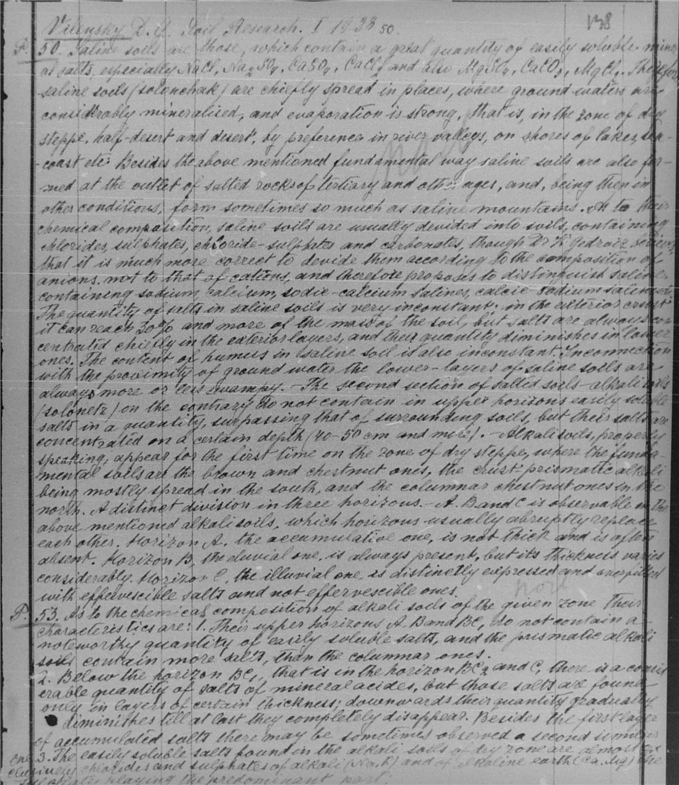 Vilensky D. G. Soil Research. I 1923 50.
138
P. 50. Saline soils are those, which contain a great quantity of easily soluble
al salts, especially NaCl, Na2SO4, CaSO4, CaCl2 and also MgSO4, CaCO3, MgCl2. Therefore
saline soils (solonchak) are chiefly spread in places, where ground waters are
considerably mineralised, and evaporation is strong, that is, in the zone of dry
steppe, half-desert and desert, by preference in river valleys, on shores of lakes, sea
-coast etc. Besides the above mentioned fundamental way saline soils are also for-
med at the outlet of salted rocks of tertiary and other ages, and, being then in
other conditions, form sometimes so much as saline mountains. As to their
chemical composition, saline soils are usually devided into soils, containing
chlorides, sulphates, chloride-sulphates and carbonates, though
that it is much more correct to devide them according to the composition of
anions, not to that of cations, and therefore proposes to distinguish saline
containing sodium, calcium, sodic-calcium salines, calcic-sodium
The quantity of salts in saline soils is very inconstant; in the exterior crust
it can reach 30% and more of the mass of the soil, but salts are always con
centrated chiefly in the exterior layers, and their quantity diminishes in lower
ones. The content of humus in saline soil is also inconstant. In connection
with the proximity of ground water the lower-layers of saline soils are
always more or less swampy. - The second section of salted soils - alkali soils
(solonetz) on the contrary do not contain in upper horizons easily soluble
salts in a quantity, surpassing that of surrounding soils, but their salts are
concentrated on a certain depth (20-50 cm and more). - Alkali soils, properly
speaking, appear for the first time on the zone of dry steppe, where the funda-
mental soils are the brown and chestnut ones, the crust prismatic alkali
being mostly spread in the south, and the columnar chestnut ones in the
north. A distinct division in three horizons - A. B and C is observable in the
above mentioned alkali soils, which horizons usually abruptly replace
each other. Horizon A. the accumulative one, is not thick and is often
absent. Horizon B, the eluvial one, is always present, but its thickness varies
considerably. Horizon C, the illuvial one is distinctly expressed and
with effervescible salts and not effervescible ones.
P. 53. As to the chemical composition of alkali soils of the given zone their
characteristics are: 1. Their upper horizons A. B and BC, do not contain a
noteworthy quantity of easily soluble salts, and the prismatic alkali
soils contain more salts, than the columnar ones.
2. Below the horizon BC1, that is in the horizon BC2 and C, there is a consid
erable quantity of salts of mineral acides, but those salts are found
only in layers of certain thickness; downwards their quantity gradually
diminishes till at last they completely disappear. Besides the first layer
of accumulated salts there may be sometimes observed a second
one. 3. The easily soluble salts found in the alkali soils of dry zone are almost ex
clusively chlorides and sulphates of alkali (Na, K) and of alkaline earth (Ca, Mg) the
playing the predominant part.